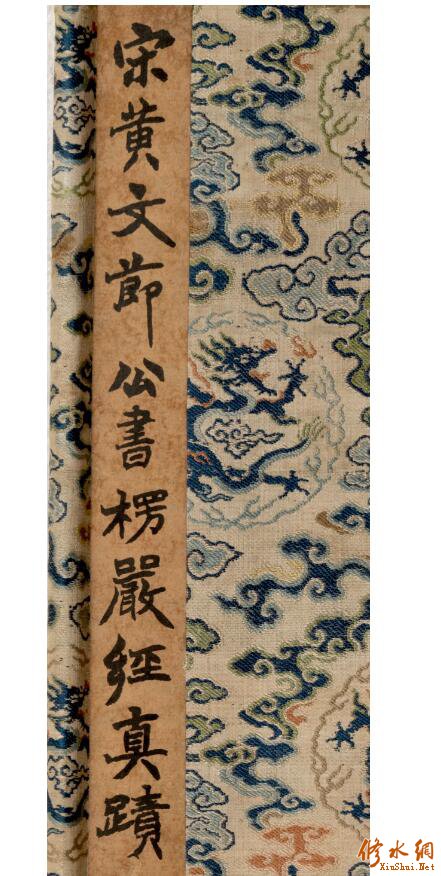 宋黄文節公書楞嚴經真蹟
修水網
XiuShui.Net